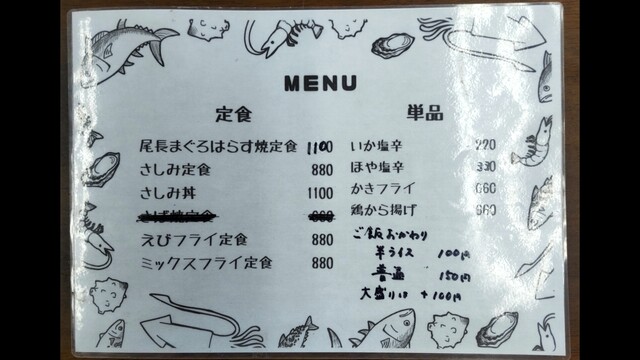 MENU
定食
尾長まぐろはらす焼定食 1100
さしみ定食 880
さしみ丼 1100
さば焼定食 660
えびフライ定食 880
ミックスフライ定食 880
単品
いか塩辛 220
ほや塩辛 330
かきフライ 660
鶏から揚げ 660
ご飯おかわり
半ライス 100円
普通 150円
大盛りは +100円